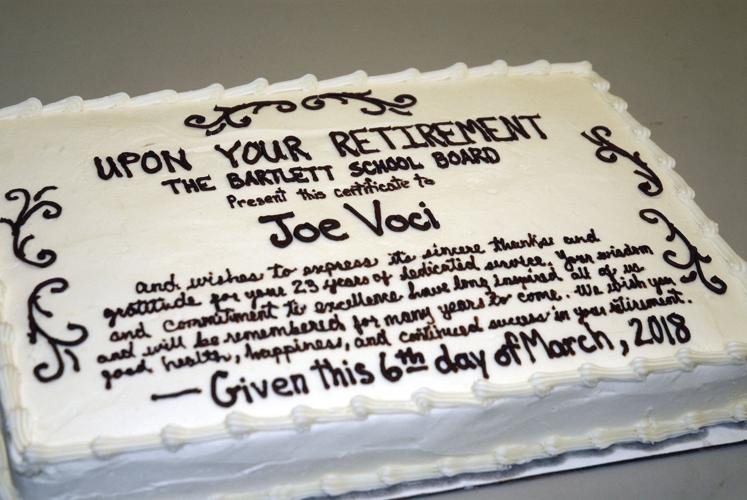 UPON YOUR RETIREMENT
THE BARTLETT SCHOOL BOARD
Present this certificate to
Joe Voci
and wishes to express its sincere thanks and
gratitude for your 23 years of dedicated service. Your wisdom
and commitment to excellence have long inspired all of us
and will be remembered for many years to come. We wish you
good health, happiness, and continued success in your retirement.
— Given this 6th day of March, 2018